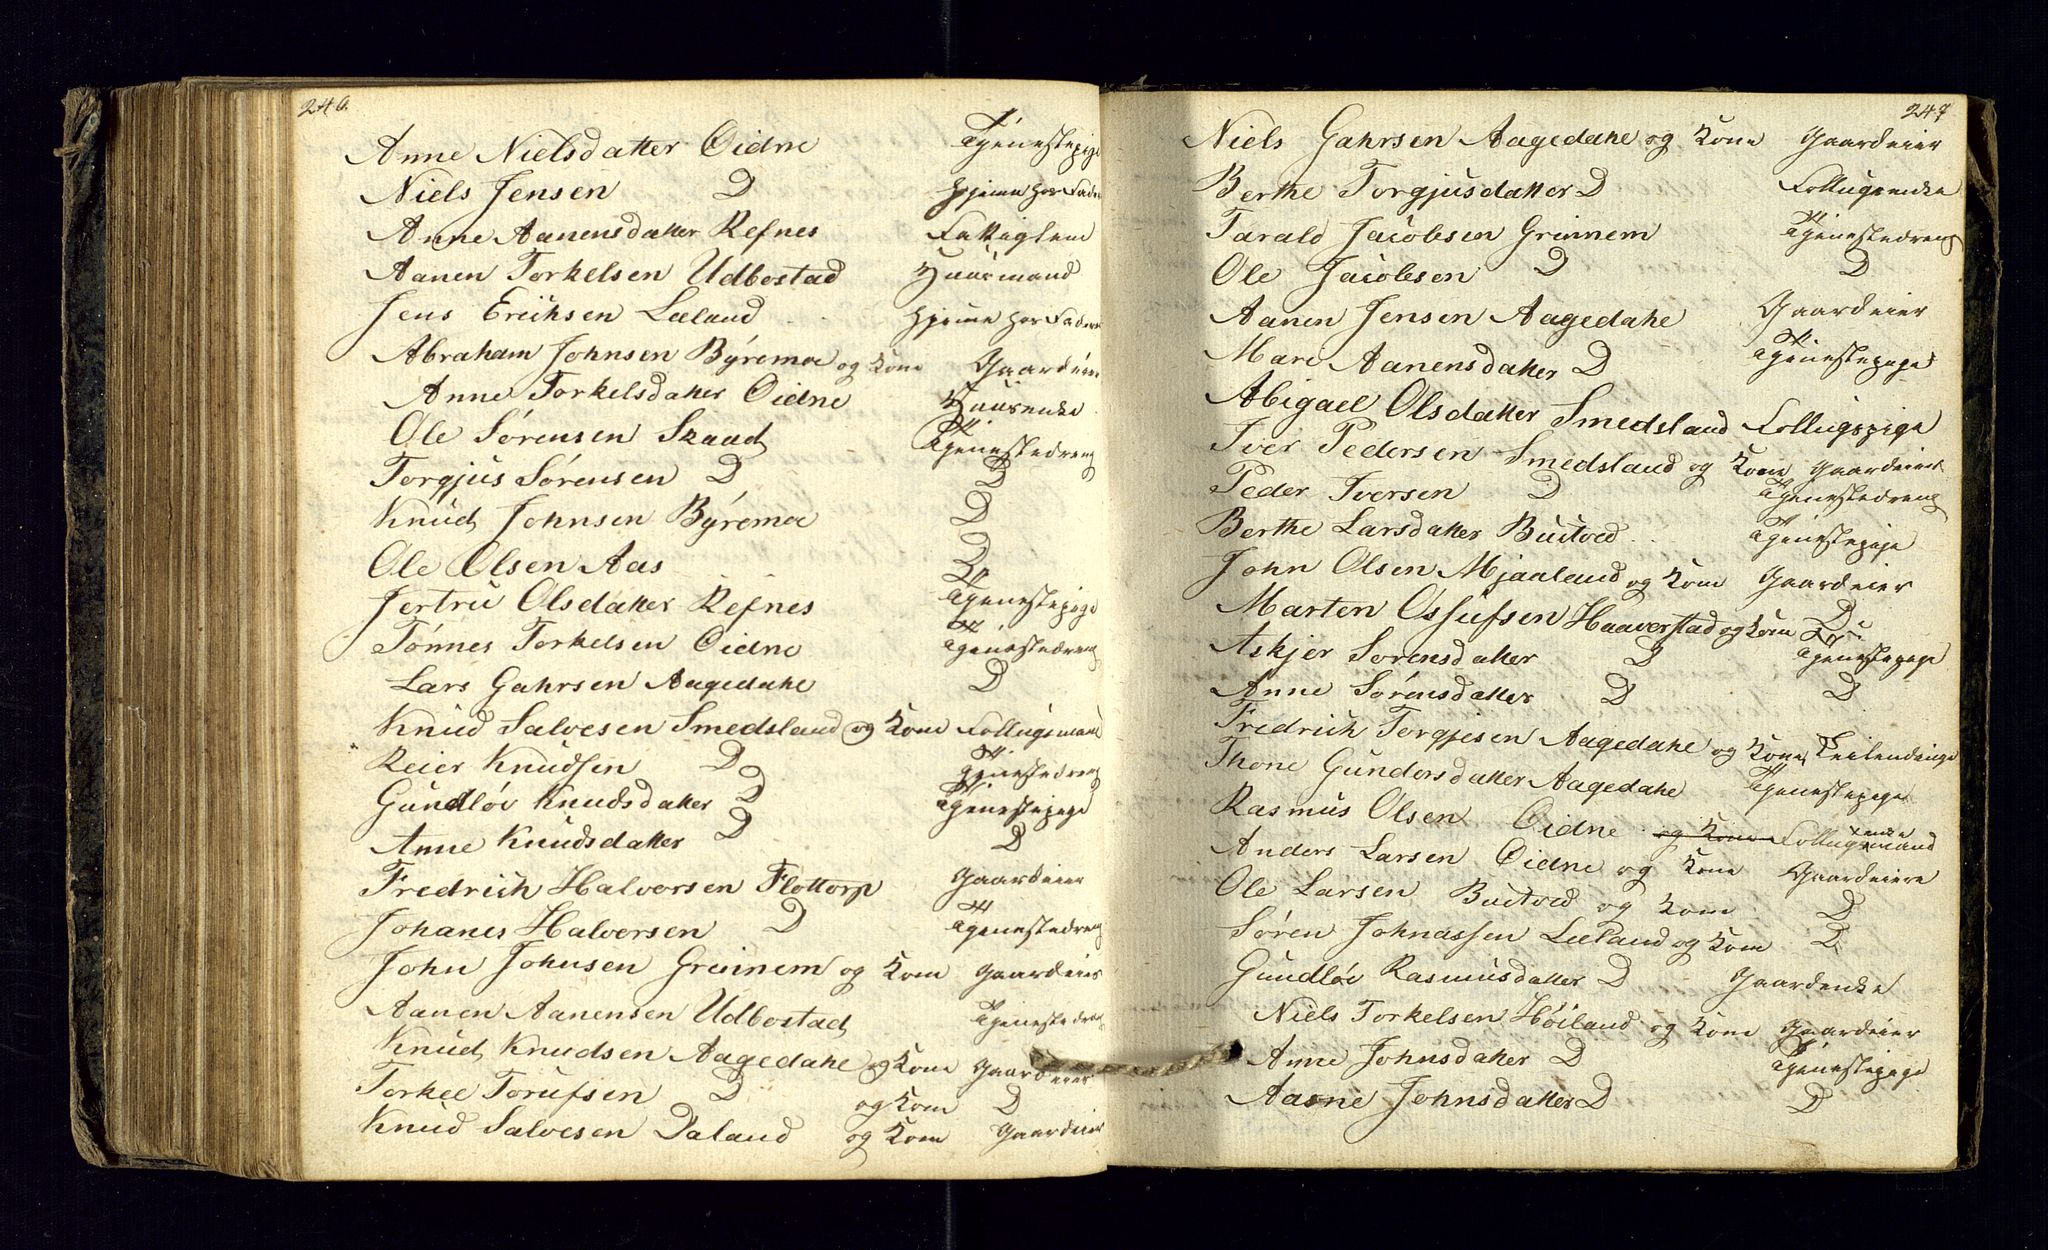 246.
Anne Nielsdatter Øidne Tjenestepige
Niels Jensen D hjeme hos Fader
Anne Aanensdatter Refnes Fattiglem
Aanen Torkelsen Udbostad Huusmand
Jens Erichsen Lœland hjeme hos Faderen
Abraham Johnsen Býremoe og Kone Gaardeier
Anne Torkelsdatter Øidne Huusenke
Ole Sørensen Skaad Tjenestedreng
Torgjus Sørensen D D
Knud Johnsen Býremoe D
Ole Olsen Aas D
Jertru Olsdatter Refnes Tjenestepige
Tønnes Torkelsen Øidne Tjenestedreng
Lars Gahrsen Aagedahl D
Knud Salvesen Smedsland og Kone Follugsmand
Reier Knudsen D Tjenestedreng
Gundløv Knudsdatter D Tjenestepige
Anne Knudsdatter D D
Fredrich Halvorsen Flottorp Gaardeier
Johanes Halvorsen D Tjenestedreng
John Johnsen Greinnem og Kone Gaardeier
Aanen Aanensen Udbostad Tjenestedreng
Knud Knudsen Aagedahl og Kone Gaardeier
Torkel Torufsen D og Kone D
Knud Salvesen Daland og Kone Gaardeier
247
Niels Gahrsen Aagedahl og Kone Gaardeier
Berthe Torgjusdatter D Follugsenke
Tarald Jacobsen Greinnem Tjenestedreng
Ole Jacobsen D D
Aanen Jensen Aagedahl Gaardeier
Mari Aanensdatter D Tjenestepige
Abigael Olsdatter Smedsland Follugspige
Iver Pedersen Smedsland og Kone Gaardeier
Peder Iversen D Tjenestedreng
Berthe Larsdatter Bustved Tjenestepige
John Olsen Mjaaland og Kone Gaardeier
Marten Osjufsen Haaverstad og Kone D
Askjer Sørensdatter D Tjenestepige
Anne Sørensdatter D D
Fredrich Torgjesen Aagedahl og Kone Leilendinge
Thone Gundersdatter Aagedahl Tjenestepige
Rasmus Olsen Øidne og Kone Follugsmand enke
Anders Larsen Øidne og Kone Gaardeiere
Ole Larsen Bustved og Kone D
Søren Johnassen Lœland og Kone D
Gundløv Rasmusdatter D Gaardenke
Niels Torkelsen Høiland og Kone Gaardeier
Anne Johnsdatter D Tjenestepige
Aasne Johnsdatter D D